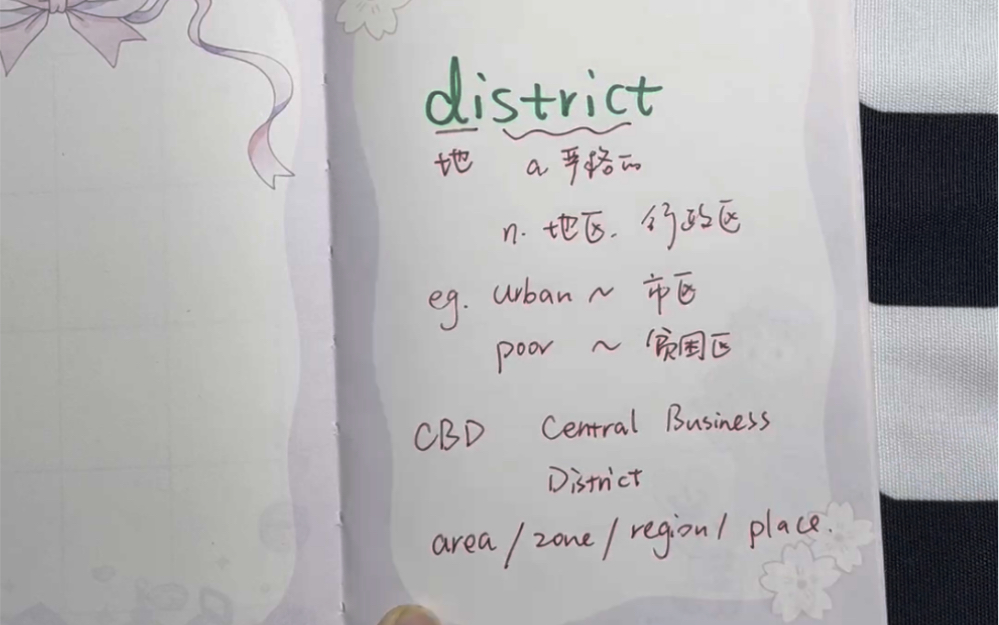 district
地 a 严格的
n. 地区. 行政区
eg. urban ~ 市区
poor ~ 贫困区
CBD Central Business
District
area / zone / region / place.